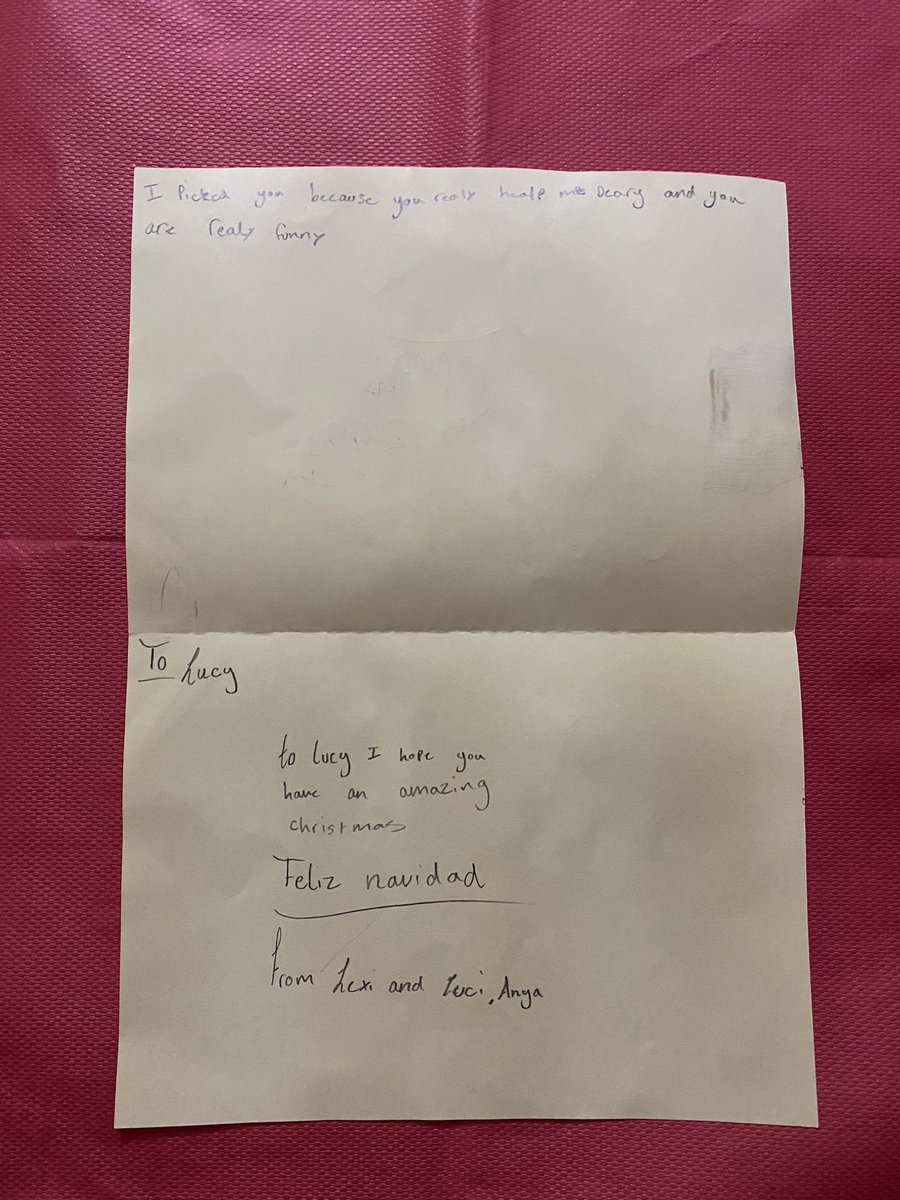 I Picked you because you realy healp mrs Deary and you
are realy funny
To Lucy
to lucy I hope you
have an amazing
christmas
Feliz navidad
From Lexi and Luci, Anya